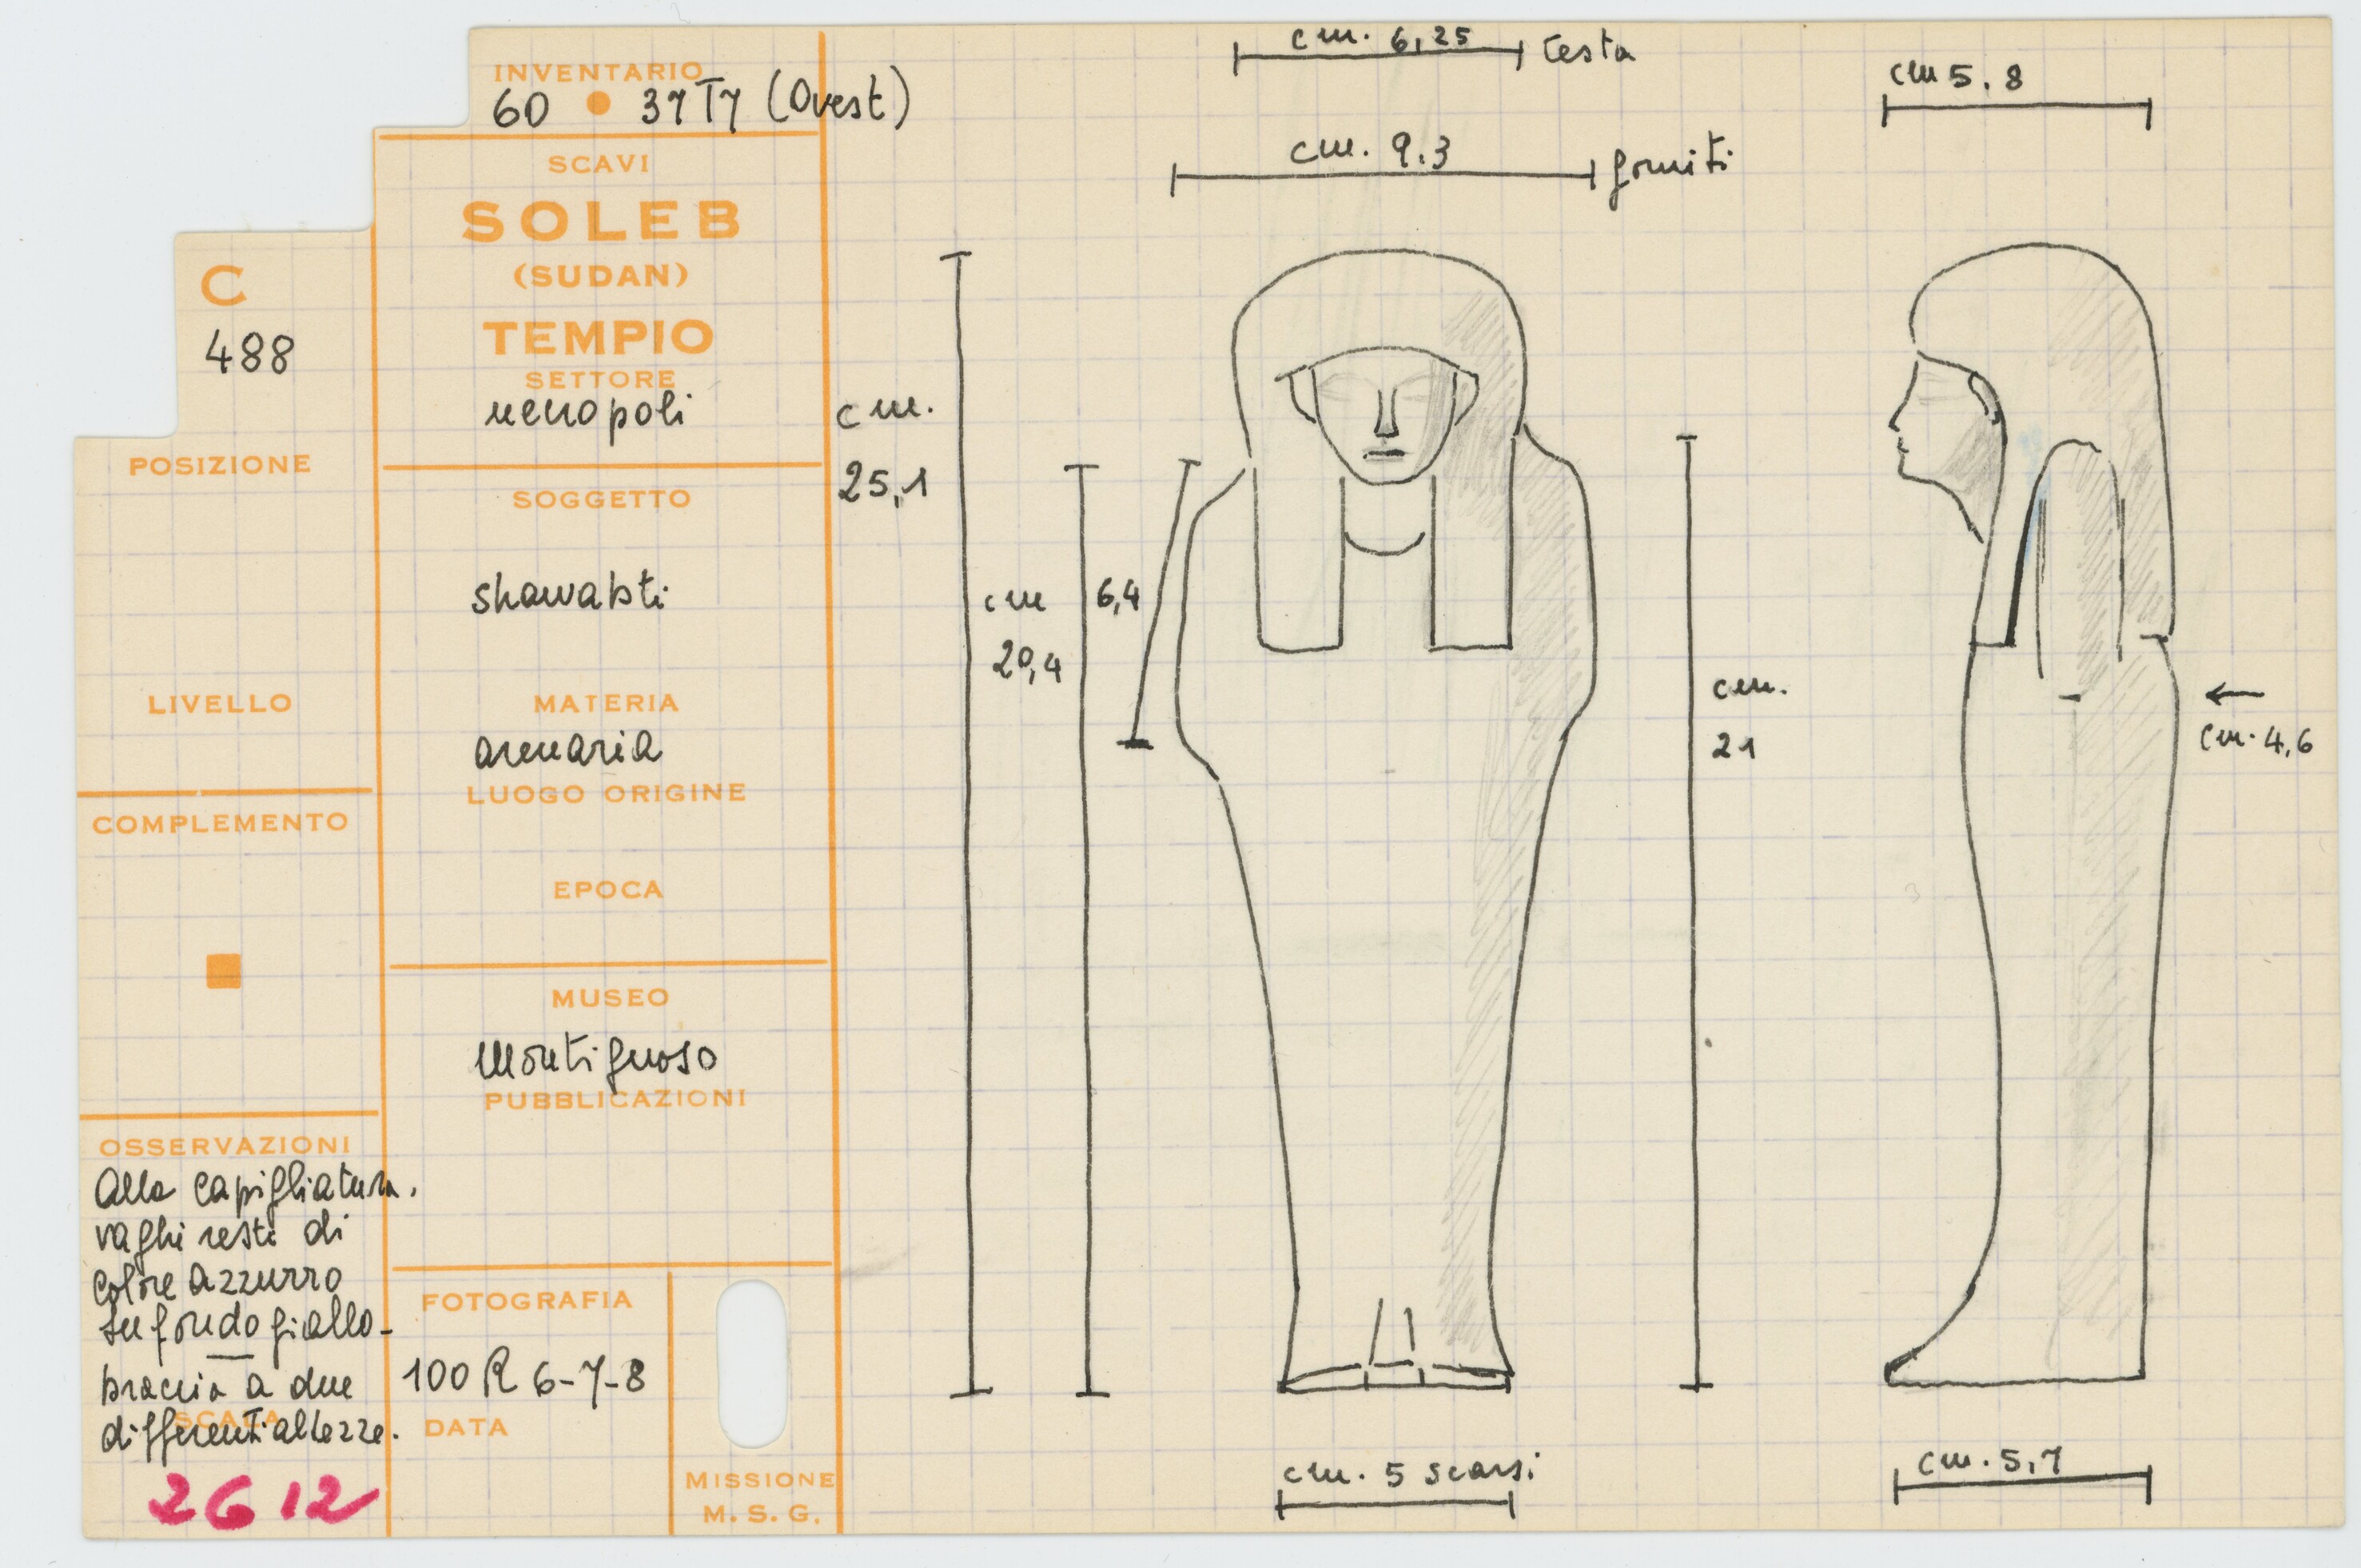 INVENTARIO
60 • 37 T7 (Ovest)
SCAVI
SOLEB
(SUDAN)
TEMPIO
SETTORE
necropoli
C
488
POSIZIONE
LIVELLO
COMPLEMENTO
SOGGETTO
shawabti
MATERIA
arenaria
LUOGO ORIGINE
EPOCA
MUSEO
Montignoso
PUBBLICAZIONI
OSSERVAZIONI
Alla capigliatura.
vaghi resti di
colore azzurro
su fondo giallo -
braccia a due
SCALA
differenti altezze.
2612
FOTOGRAFIA
100 R 6-7-8
DATA
MISSIONE
M. S. G.
cm. 6,25 testa
cm. 9.3 gomiti
cm 5.8
cm.
25,1
cm
20,4
6,4
cm.
21
cm. 4,6
cm. 5 scarsi
cm. 5,7